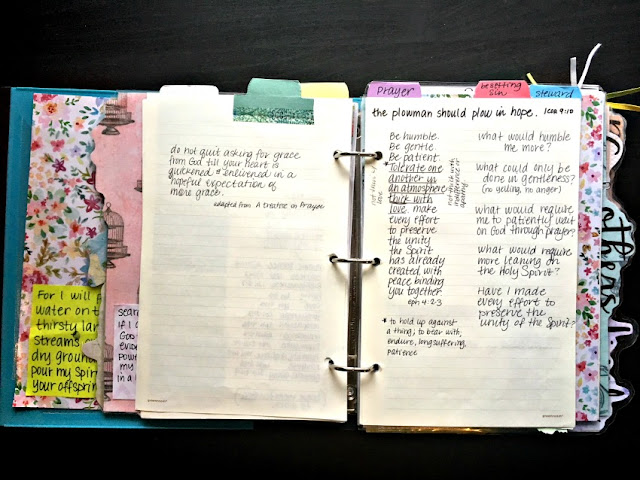 For I will
water on t
thirsty lan
streams
dry ground
pour my Spiri
your offsprin
sear
if I
God
evid
pow
my
in a
do not quit asking for grace
from God till your heart is
quickened & enlivened in a
hopeful expectation of
more grace.
adapted from A Treatise on Prayer
prayer
besetting
sin
steward
the plowman should plow in hope. 1COR 9:10
Be humble.
Be gentle.
Be patient.
*Tolerate one
another in
an atmosphere
thick with
love. make
every effort
to preserve
the unity
the Spirit
has already
created, with
peace binding
you together.
eph 4:2-3
not thick with
indifference or
apathy
* to hold up against
a thing; to bear with,
endure, longsuffering,
patience
what would humble
me more?
what could only be
done in gentleness?
(no yelling, no anger)
what would require
me to patiently wait
on God through prayer?
what would require
more leaning on
the Holy Spirit?
Have I made
every effort to
preserve the
unity of the Spirit?